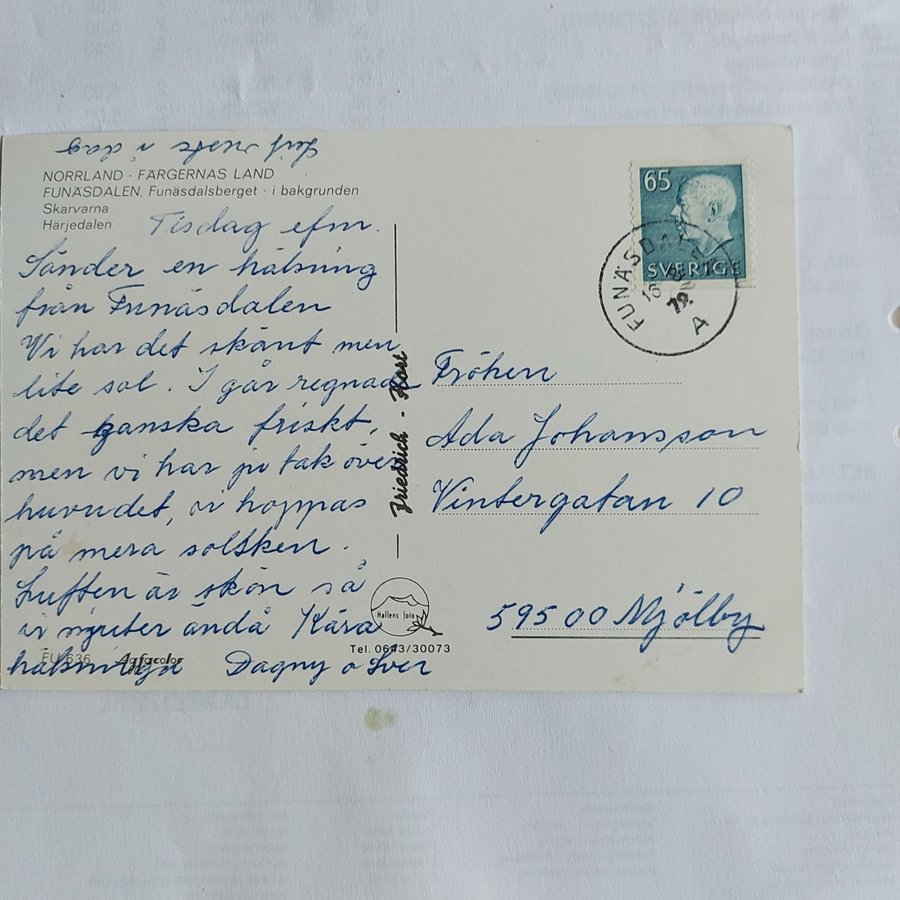 NORRLAND - FÄRGERNAS LAND
FUNÄSDALEN, Funäsdalsberget - i bakgrunden
Skarvarna
Härjedalen
Tisdag efm.
Sänder en hälsning
från Funäsdalen
Vi har det skönt men
lite sol. I går regnade
det ganska friskt,
men vi har ju tak över
huvudet, vi hoppas
på mera solsken.
Luften är skön så
vi njuter ändå Kära
hälsningar Dagny o Sven
i dag
FU 636 Agfacolor
Friedrich - Kort
Hallens foto
Tel. 0643/30073
65
SVERIGE
FUNÄSDALEN
A
Fröken
Ada Johansson
Vintergatan 10
595 00 Mjölby